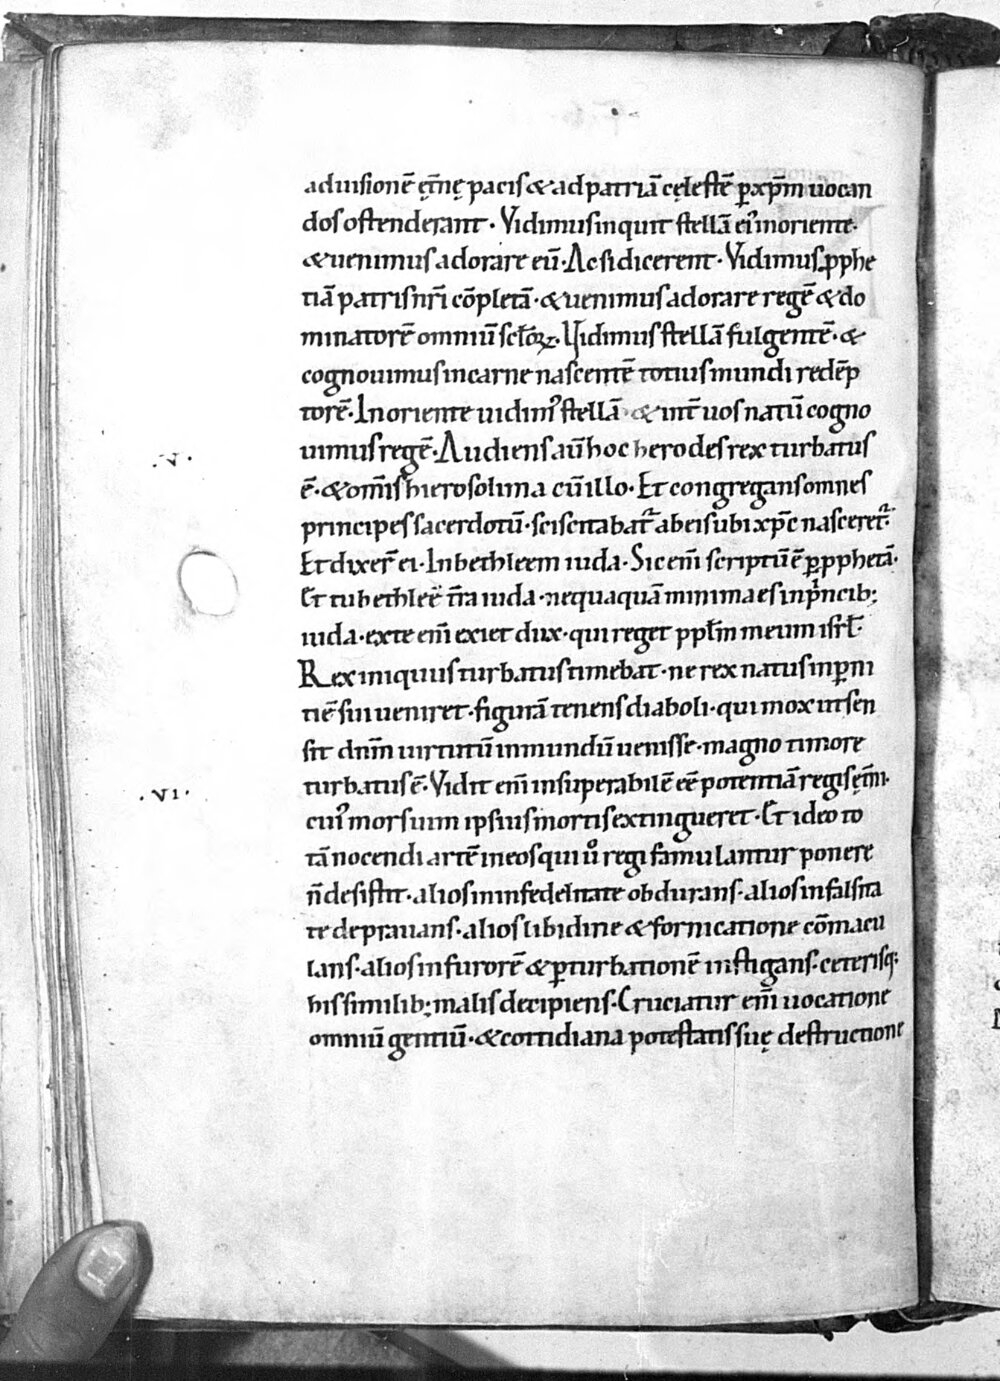 aduisionē ęt̄nę pacis & ad patriā cęlestē p̱ xp̄m uocan
dos ostenderant. Vidimus inquit stellā ei᾽ in oriente.
& uenimus adorare eū. Ac si dicerent. Vidimus ꝓphe
tiā patris nr̄i cōpletā. & uenimus adorare regē & do
minatorē omniū sc̄loꝝ. Vidimus stellā fulgentē. &
cognouimus in carne nascentē totius mundi redēp
torē. In oriente uidim᾽ stellā. & int̄ uos natū cogno
.V. uimus regē. Audiens aū hoc herodes rex turbatus
ē. & om̄is hierosolima cū illo. Et congregans omnes
principes sacerdotū. sciscitabat᷑ ab eis ubi xp̄c nasceret᷑.
Et dixer̄ ei. In bethleem iuda. Sic eni̅ scriptū ē ꝑ ꝓphetā.
Et tu bethleē t̄ra iuda. nequaquā minima es in pⁱncib;
iuda. ex te eni̅ exiet dux. qui reget pp̄lm meum isrł.
Rex iniquus turbatus timebat. ne rex natus in ꝑni
tiē sui ueniret. figurā tenens diaboli. qui mox ut sen
sit dn̄m uirtutū in mundū uenisse. magno timore
turbatus ē. Vidit eni̅ insuperabilē eē potentiā regis ęt̄ni.
.VI. cui᾽ morsuim ipsius mortis extingueret. Et ideo to
tā nocendi artē in eos qui uͦ regi famulantur ponere
n̄ desistit. alios in infedelitate obdurans. alios in falsita
te deprauans. alios libidine & fornicatione cōmacu
lans. alios in furorē & ꝑturbationē instigans. ceterisq;
his similib; malis decipiens. Cruciatur eni̅ uocatione
omniū gentiū. & cottidiana potestatis suę destructione